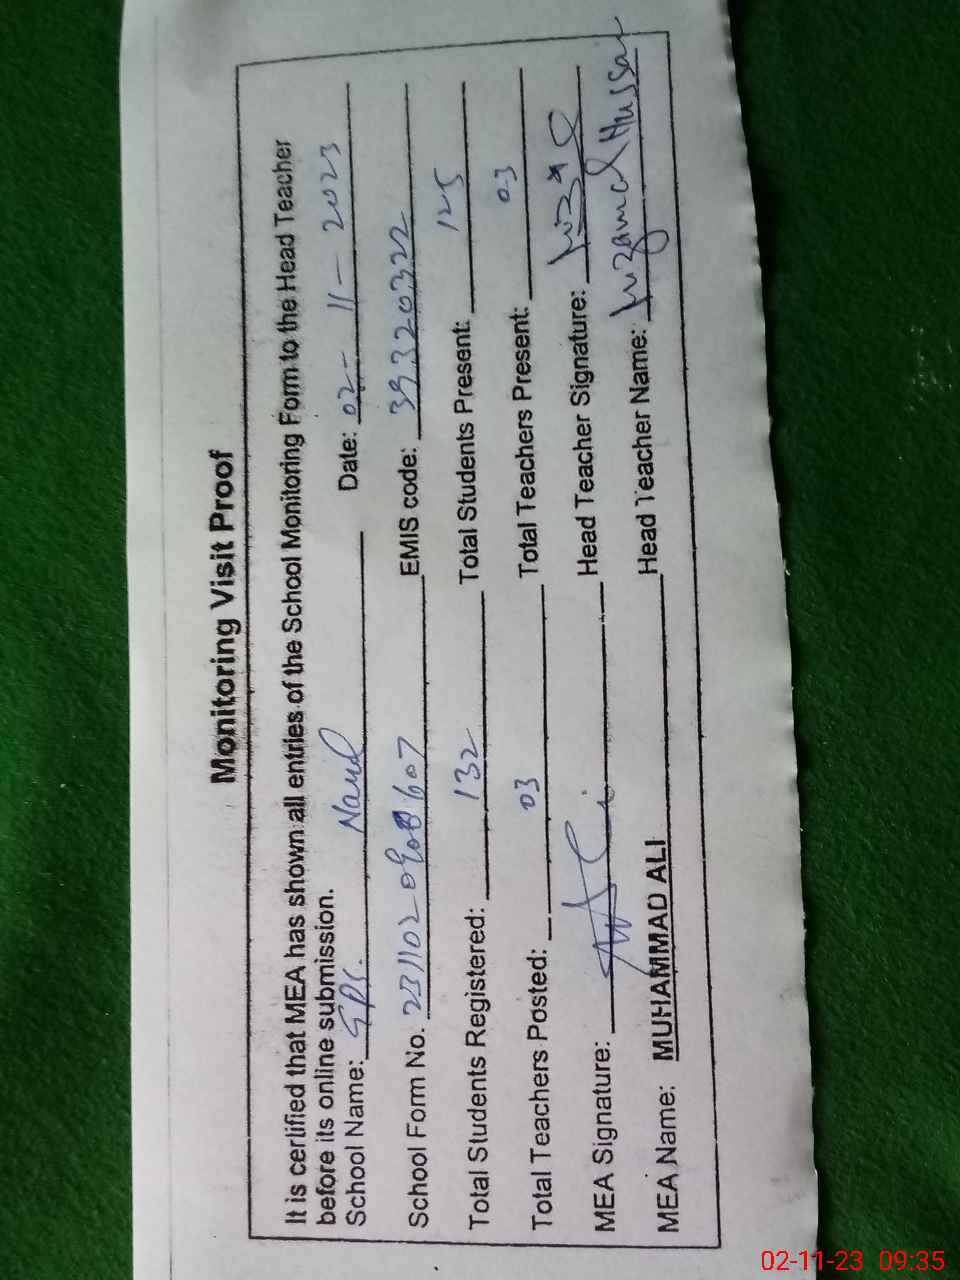 Monitoring Visit Proof
It is certified that MEA has shown all entries of the School Monitoring Form to the Head Teacher
before its online submission.
School Name: GPS. Date: 02-11-2023
School Form No. EMIS code: 39320322
Total Students Registered: 132 Total Students Present: 125
Total Teachers Posted: 03 Total Teachers Present: 03
MEA Signature: Head Teacher Signature:
MEA Name: MUHAMMAD ALI Head Teacher Name: Muzamal Hussan
02-11-23 09:35